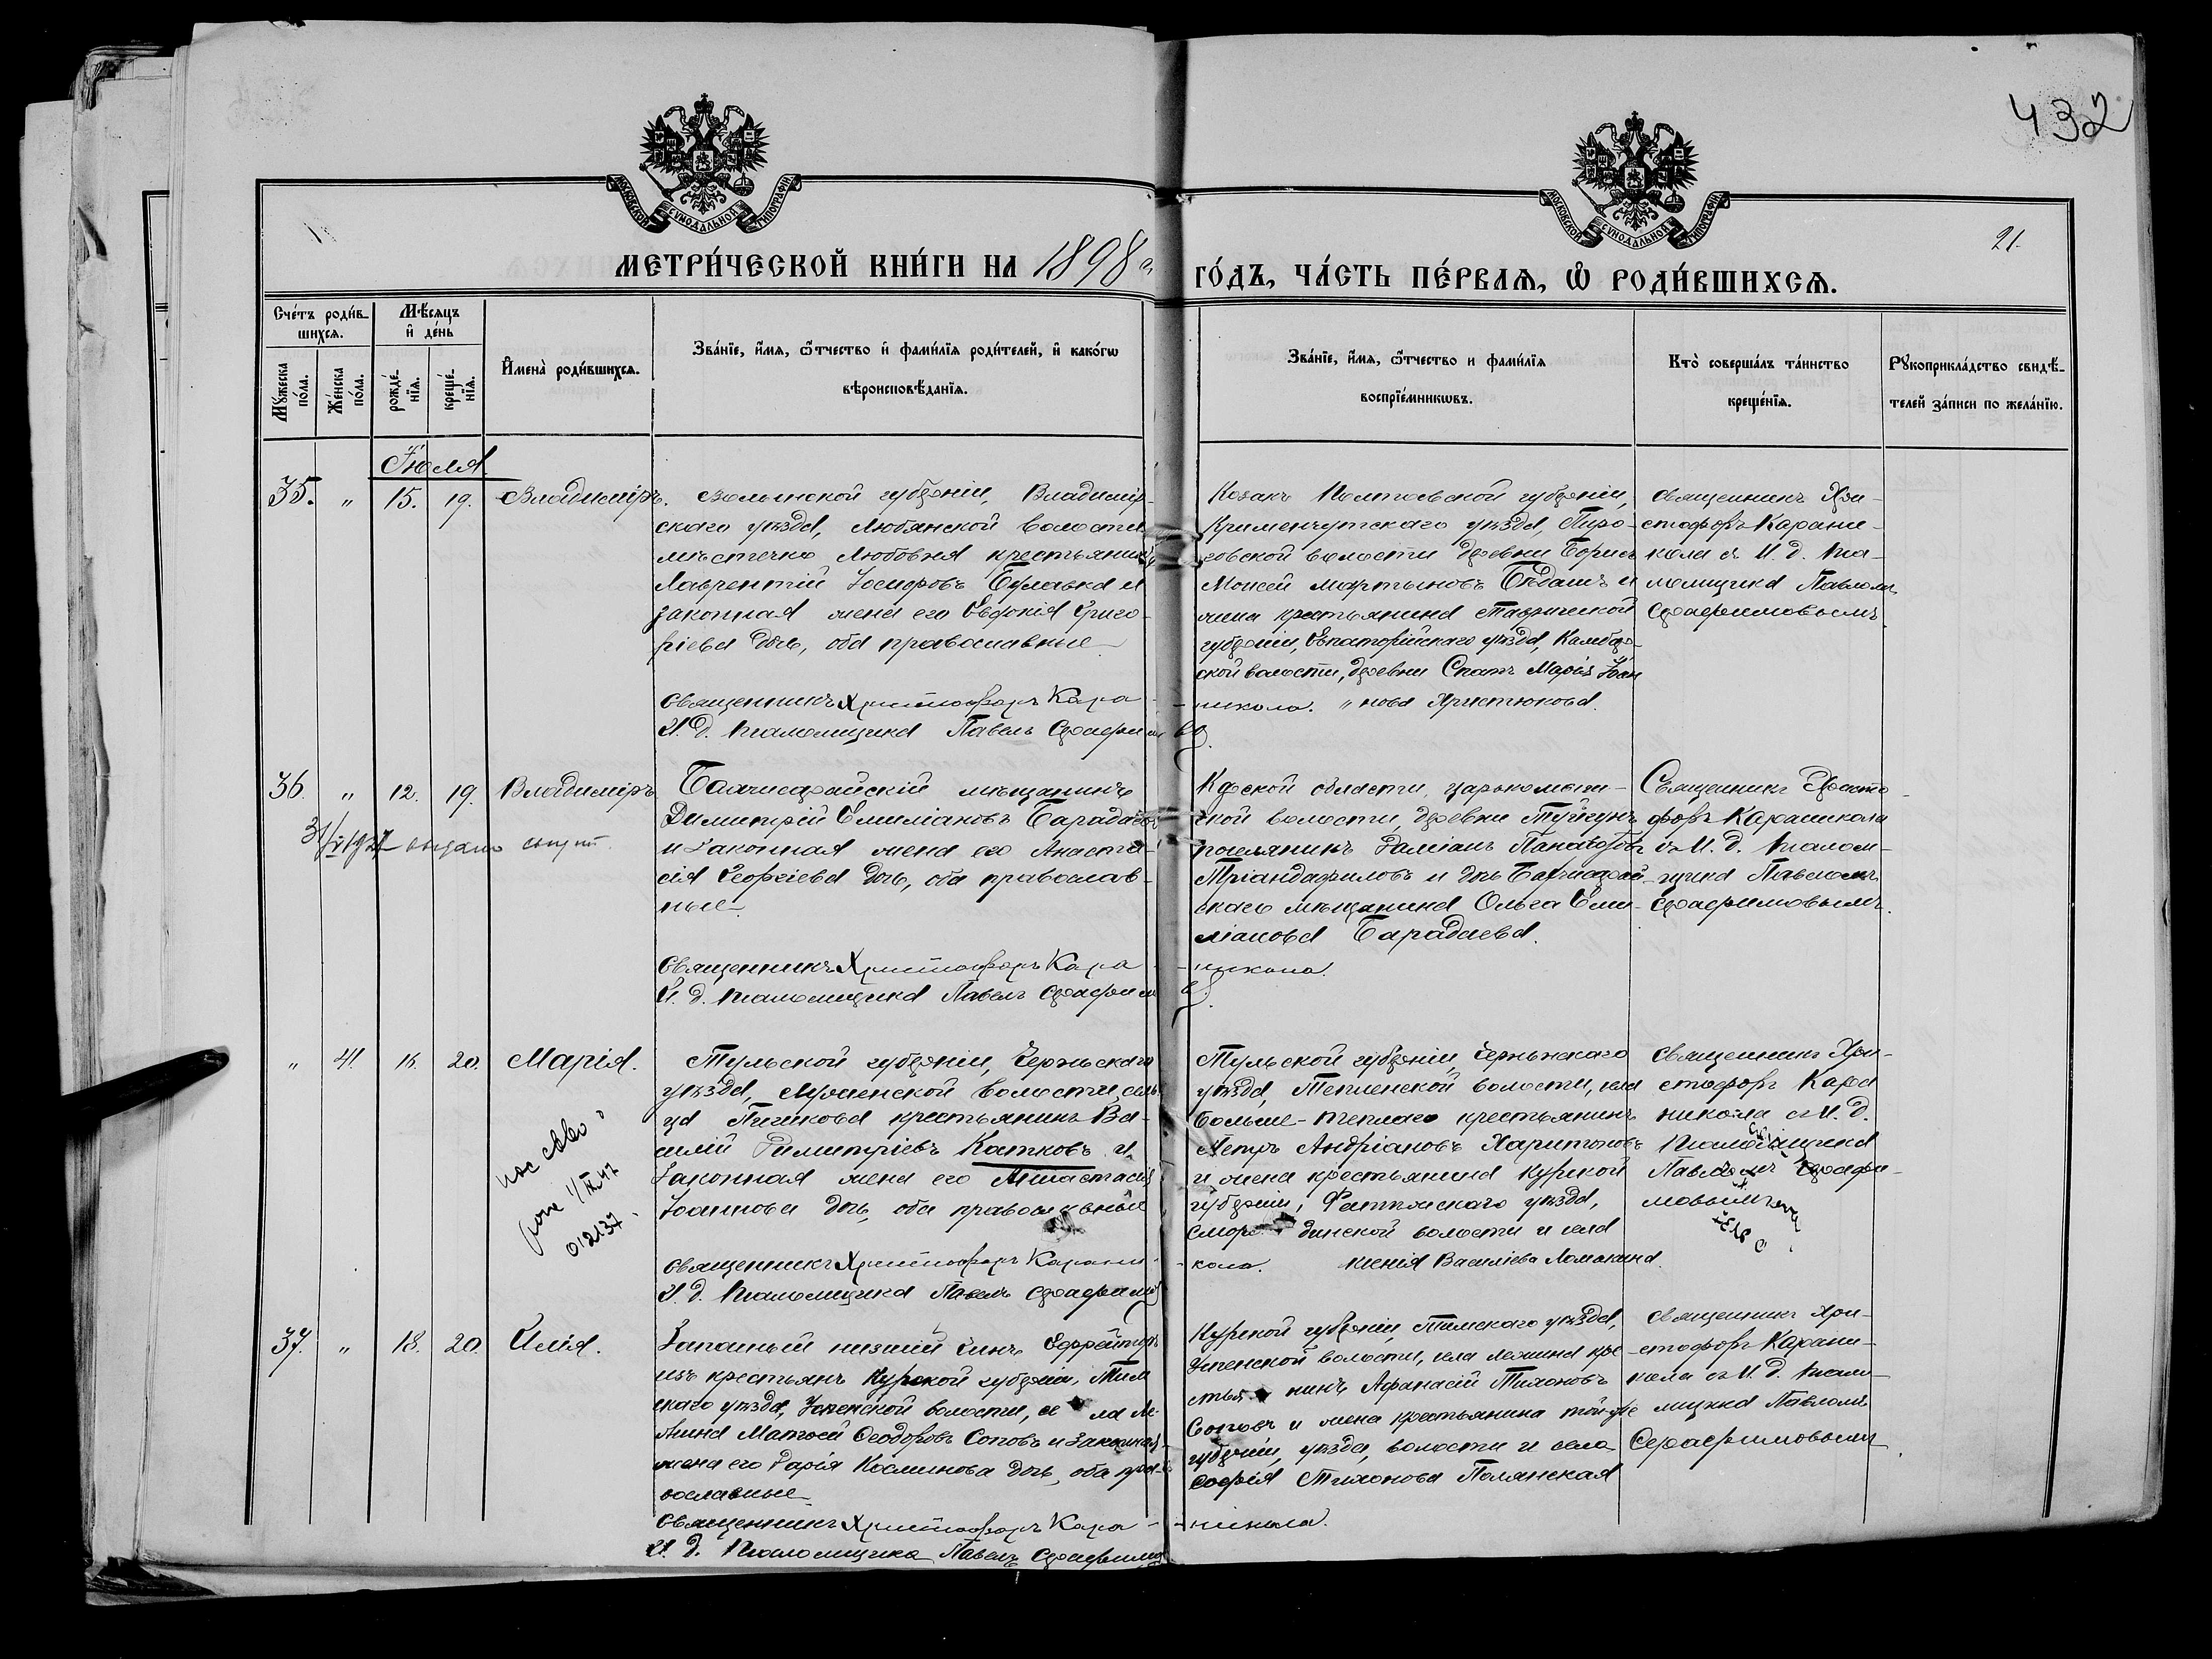 432
МОСКОВСКОЙ СѴНОДАЛЬНОЙ ТИПОГРАФІИ
МОСКОВСКОЙ СѴНОДАЛЬНОЙ ТИПОГРАФІИ
21.
МЕТРИ́ЧЕСКОЙ КНИ́ГИ НА 1898 ГО́ДЪ, ЧА́СТЬ ПЕ́РВАѦ, Ѡ РОДИ́ВШИХСѦ.
Сче́тъ роди́в-
шихсѧ.
Мꙋ́жеска по́ла.
Же́нска по́ла.
Мѣ́сѧцъ и҆ де́нь
рожде́-
нїѧ.
креще́-
нїѧ.
И҆мена̀ роди́вшихсѧ.
Зва́нїе, и҆́мѧ, ѻ҆́тчество и҆ фами́лїѧ роди́телей, и҆ како́гѡ
вѣроисповѣ́данїѧ.
Зва́нїе, и҆́мѧ, ѻ҆́тчество и фами́лїѧ
воспрїе́мникѡвъ.
Кто̀ соверша́лъ та́инство
креще́нїѧ.
Рꙋкоприкла́дство свидѣ́-
телей за́писи по жела́нїю.
Іюля
35. " 15. 19. Владиміръ.
Волынской губерніи, Владимір-
скаго уѣзда, Любянской волости
мѣстечка Любовня крестьянинъ
Лаврентій Іосифовъ Булавка и
законная жена его Евдокія Григо-
ріева дочь, оба православные
Священникъ Христофоръ Кара-
И. д. псаломщика Павелъ Серафимовъ
Козакъ Полтавской губерніи,
Кременчугскаго уѣзда, Пиро-
говской волости деревни Борисъ
Моисей Мартыновъ Бѣдашъ и
жена крестьянина Таврической
губерніи, Евпаторійскаго уѣзда, Камбар-
ской волости, деревни Спатъ Марія Іоан
-никола. "нова Христюкова.
Священникъ Хри-
стофоръ Карани-
кола съ И. д. пса-
ломщика Павломъ
Серафимовымъ.
36. " 12. 19. Владиміръ
31/V 1927 выдано
Бахчисарайскій мѣщанинъ
Димитрій Емиліановъ Барадаевъ
и законная жена его Анаста-
сія Георгіева дочь, оба православ-
ные.
Священникъ Христофоръ Кара-
И. д. псаломщика Павелъ Серафимовъ
Карской области,
ской волости, деревни
поселянинъ Даміанъ Панаіотовъ
Тріандафиловъ и дочь Бахчисарай-
скаго мѣщанина Ольга Еми-
ліанова Барадаева.
-никола.
Священникъ Христо-
форъ Караникола
съ И. д. псалом-
щика Павломъ
Серафимовымъ.
" 41. 16. 20. Марія.
012137
Тульской губерніи, Черньскаго
уѣзда, волости, сель-
ца крестьянинъ Ва-
силій Димитріевъ Катковъ и
законная жена его Анастасія
Іоаннова дочь, оба православные
Священникъ Христофоръ Карани-
И. д. псаломщика Павелъ Серафимовъ
Тульской губерніи, Черньскаго
уѣзда, Тепленской волости, села
Больше-Теплаго крестьянинъ
Петръ Андріановъ Харитоновъ
и жена крестьянина Курской
губерніи, Фатежскаго уѣзда,
Смородинской волости и села
-кола. Ксенія Василіева Ломакина.
Священникъ Хри-
стофоръ Кара
никола съ И. д.
псаломщика
Павломъ Серафи-
мовымъ
37. " 18. 20. Илія.
Запасный низшій чинъ Ефрейторъ
изъ крестьянъ Курской губерніи, Тим
скаго уѣзда, Успенской волости, села Ле-
жина Матѳей Ѳеодоровъ Соповъ и законная
жена его Дарія Косминова дочь, оба пра-
вославные
Священникъ Христофоръ Кара-
И. д. псаломщика Павелъ Серафимовъ
Курской губерніи, Тимскаго уѣзда,
Успенской волости, села Лежина кре-
стьянинъ Афанасій Тихоновъ
Соповъ и жена крестьянина той-же
губерніи, уѣзда, волости и села
Софія Тихонова Полянская
-никола.
Священникъ Хри-
стофоръ Карани-
кола съ И. д. псало-
мщика Павломъ
Серафимовымъ